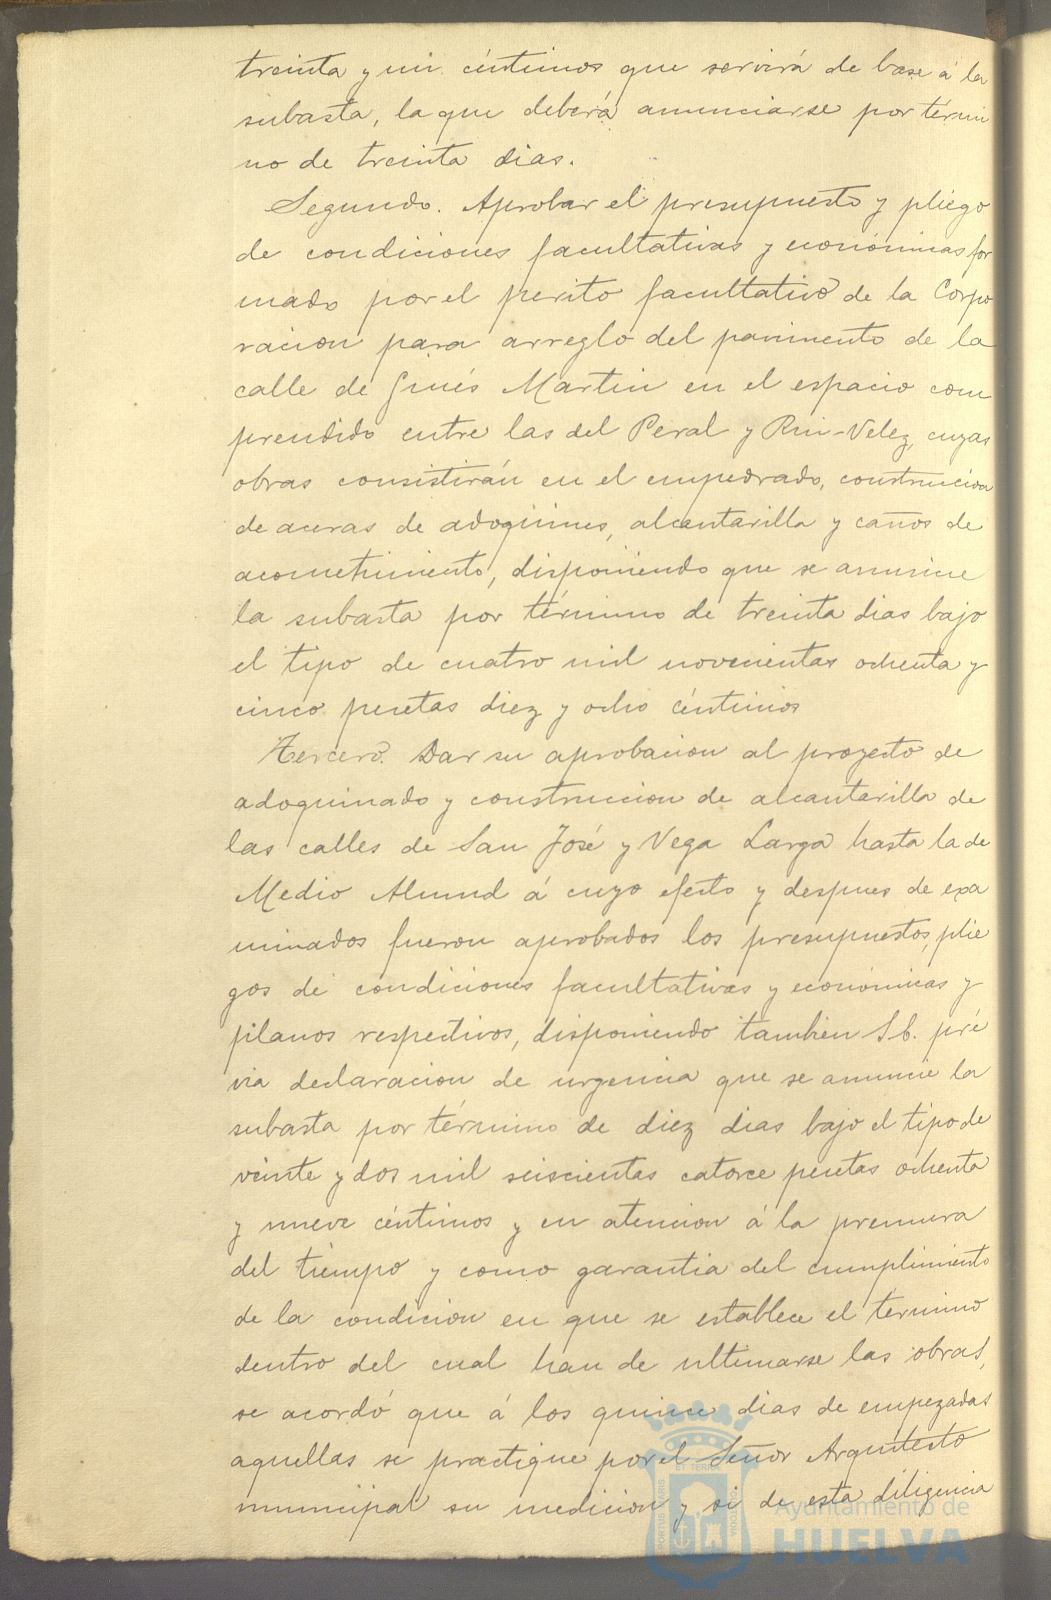 treinta y un céntimos que servirá de base á la
subasta, la que deberá anunciarse por térmi
no de treinta dias.
Segundo. Aprobar el presupuesto y pliego
de condiciones facultativas y económicas for
mado por el perito facultativo de la Corpo
racion para arreglo del pavimento de la
calle de Ginés Martin en el espacio com
prendido entre las del Peral y Rui-Velez, cuyas
obras consistirán en el empedrado, construccion
de aceras de adoquines, alcantarilla y caños de
acometimiento, disponiendo que se anuncie
la subasta por término de treinta dias bajo
el tipo de cuatro mil novecientas ochenta y
cinco pesetas diez y ocho céntimos
Tercero. Dar su aprobacion al proyecto de
adoquinado y construccion de alcantarilla de
las calles de San José y Vega Larga hasta la de
Medio Almud á cuyo efecto y despues de exa
minados fueron aprobados los presupuestos, plie
gos de condiciones facultativas y económicas y
planos respectivos, disponiendo tambien S. E. pré
via declaracion de urgencia que se anuncie la
subasta por término de diez dias bajo el tipo de
veinte y dos mil seiscientas catorce pesetas ochenta
y nueve céntimos y en atencion á la premura
del tiempo y como garantia del cumplimiento
de la condicion en que se establece el término
dentro del cual han de ultimarse las obras,
se acordó que á los quince dias de empezadas
aquellas se practique por el Señor Arquitecto
municipal su medicion y si de esta diligencia
Ayuntamiento de
HUELVA